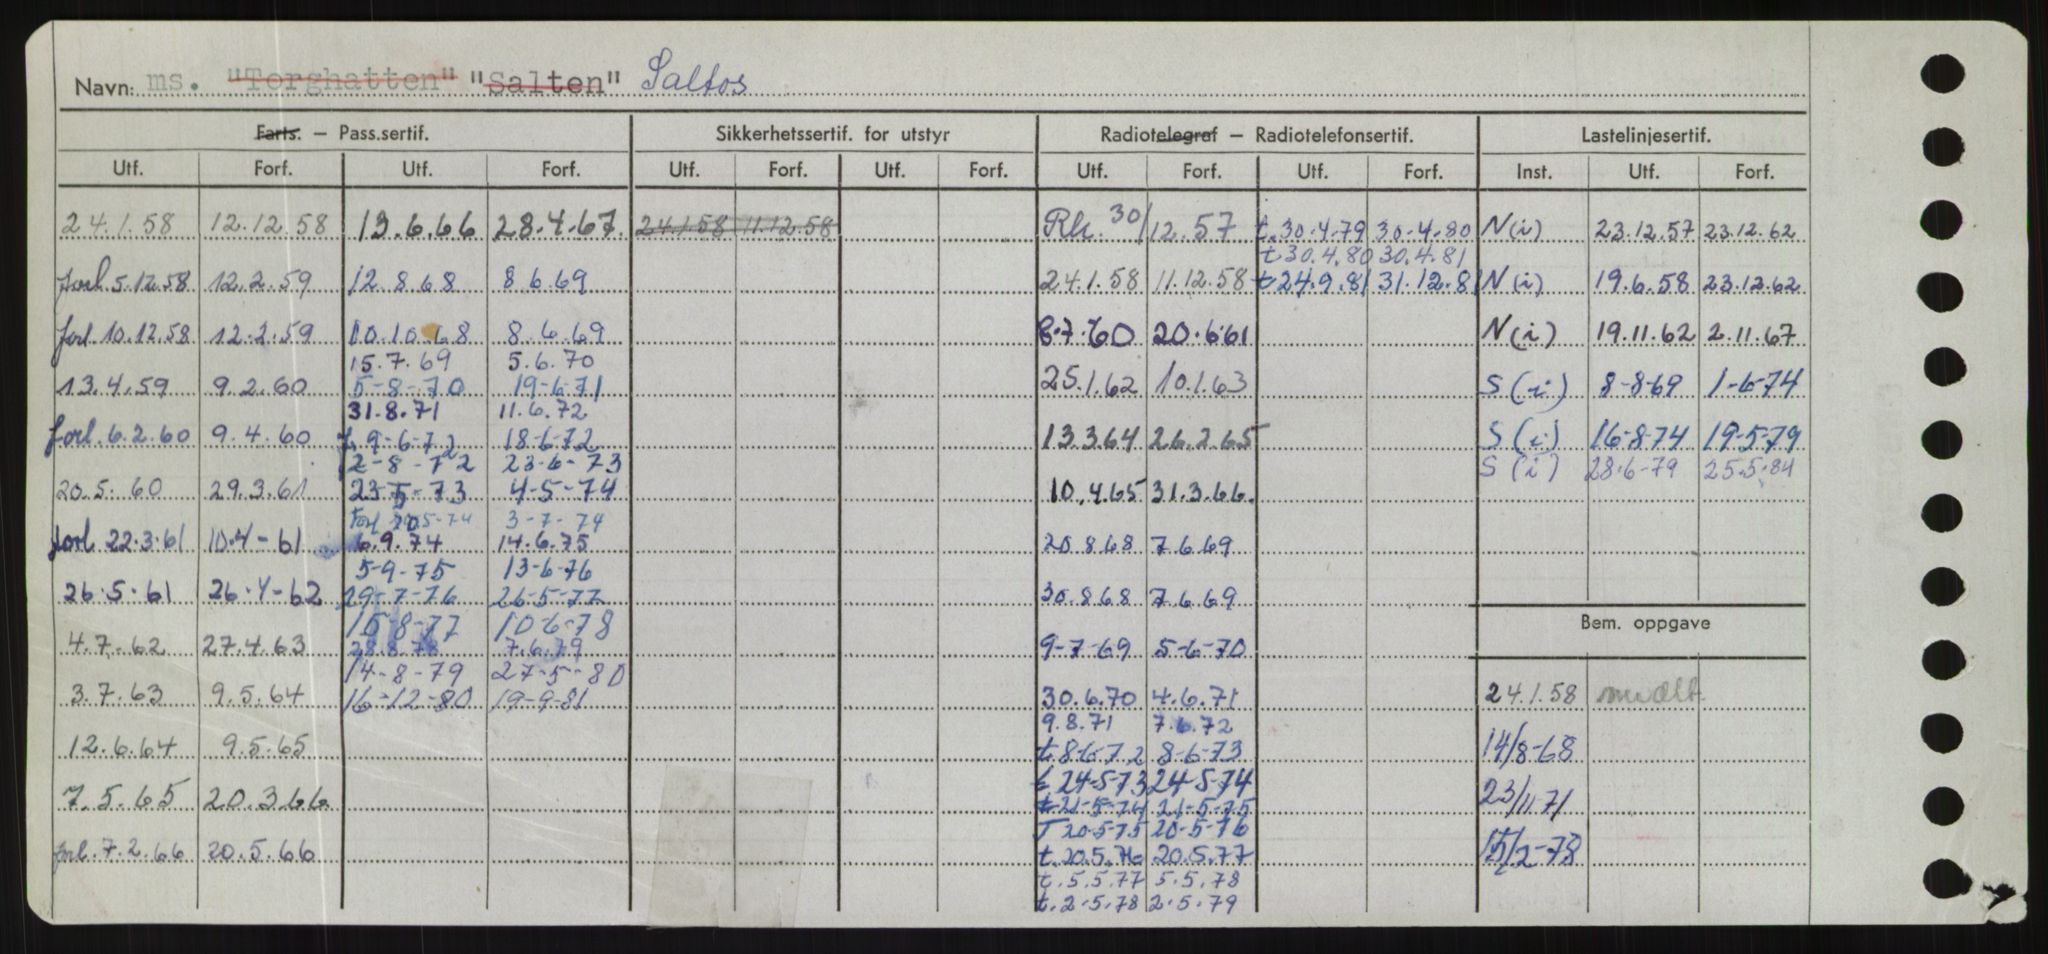 Navn: ms. "Torghatten" "Salten" Saltos
Farts. – Pass.sertif. Sikkerhetssertif. for utstyr Radiotelegraf – Radiotelefonsertif. Lastelinjesertif.
Utf. Forf. Utf. Forf. Utf. Forf. Utf. Forf. Utf. Forf. Utf. Forf. Inst. Utf. Forf.
24.1.58 12.12.58 13.6.66 28.4.67. 24.1.58 11.12.58 Rk. 30/12.57 t.30.4.79 30.4.80 N(i) 23.12.57 23.12.62
t30.4.80 30.4.81
forl. 5.12.58 12.2.59 12.8.68 8 6.69 24.1.58 11.12.58 t24.9.81 31.12.81 N(i) 19.6.58 23.12.62
forl. 10.12.58 12.2.59 10.10.68 8.6.69 8.7.60 20.6.61 N(i) 19.11.62 2.11.67
15.7.69 5.6.70
13.4.59 9.2.60 5-8-70 19-6-71 25.1.62 10.1.63 S(i) 8-8-69 1-6-74
31.8.71 11.6.72
forl. 6.2.60 9.4.60 f. 9-6-72 18-6-72 13.3.64 26.2.65 S(i) 16-8-74 19-5-79
2-8-72 23-6-73 S(i) 28-6-79 25.5.84
20.5.60 29.3.61 23-5-73 4-5-74 10.4.65 31.3.66.
Forl 5-74 3-7-74
forl. 22.3.61 10.4-61 6.9.74 14.6.75 20.8.68 7.6.69
5-9-75 13-6-76
26.5.61 26.4-62 29-7-76 26-5-77 30.8.68 7.6.69
15-8-77 10-6-78 Bem. oppgave
4.7.62 27.4.63 28.8.78 7.6.79 9-7-69 5-6-70
14-8-79 27-5-80
3.7.63 9.5.64 16-12-80 19-9-81 30.6.70 4.6.71 24.1.58
9.8.71 7.6.72
12.6.64 9.5.65 t.8-6-72 8-6-73 14/8-68
t 24-5-73 24-5-74
7.5.65 20.3.66 t 21-5-74 21-5-75 23/11 71
T 20-5-75 20-5-76
forl. 7.2.66 20.5.66 t.20.5.76 20.5.77 15/2-78
t.5.5.77 5.5.78
t.2.5.78 2.5.79